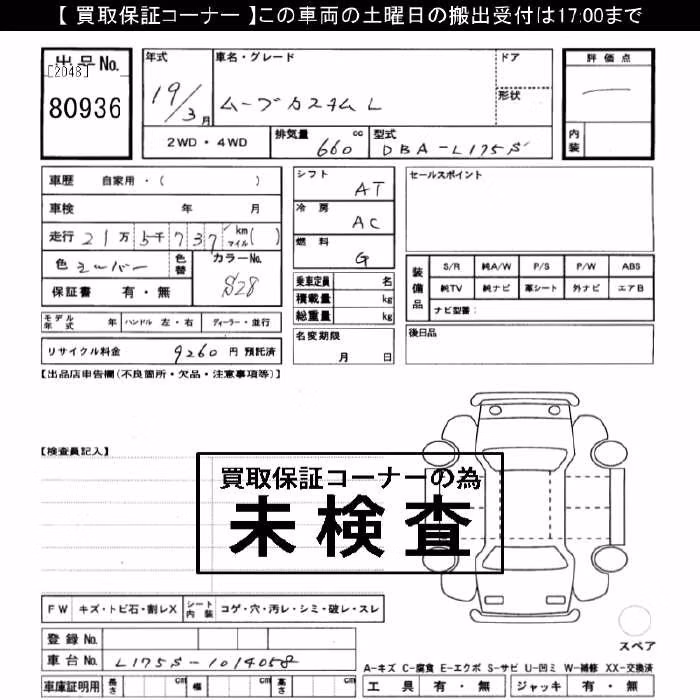 【 買取保証コーナー 】この車両の土曜日の搬出受付は17:00まで
出品No.
[2048]
80936
年式
19/3月
車名・グレード
ムーブカスタム L
ドア
形状
評価点
内装
2WD・4WD
排気量
660 cc
型式
DBA-L175S
車歴 自家用・( )
車検 年 月
走行 21万5千737 km マイル( )
色 シルバー
色替
カラーNo.
S28
保証書 有・無
シフト AT
冷房 AC
燃料 G
乗車定員 名
積載量 kg
総重量 kg
セールスポイント
装備品
S/R 純A/W P/S P/W ABS
純TV 純ナビ 革シート 外ナビ エアB
ナビ型番:
モデル年式 年 ハンドル 左・右 ディーラー・並行
名変期限
月 日
後日品
リサイクル料金 9260 円 預託済
【出品店申告欄(不良箇所・欠品・注意事項等)】
【検査員記入】
買取保証コーナーの為
未検査
FW キズ・トビ石・割レX シート内装 コゲ・穴・汚レ・シミ・破レ・スレ
スペア
登録 No.
車台 No. L175S-1014058
A-キズ C-腐食 E-エクボ S-サビ U-凹ミ W-補修 XX-交換済
車庫証明用 長さ cm 幅 cm 高さ cm
工具 有・無 ジャッキ 有・無